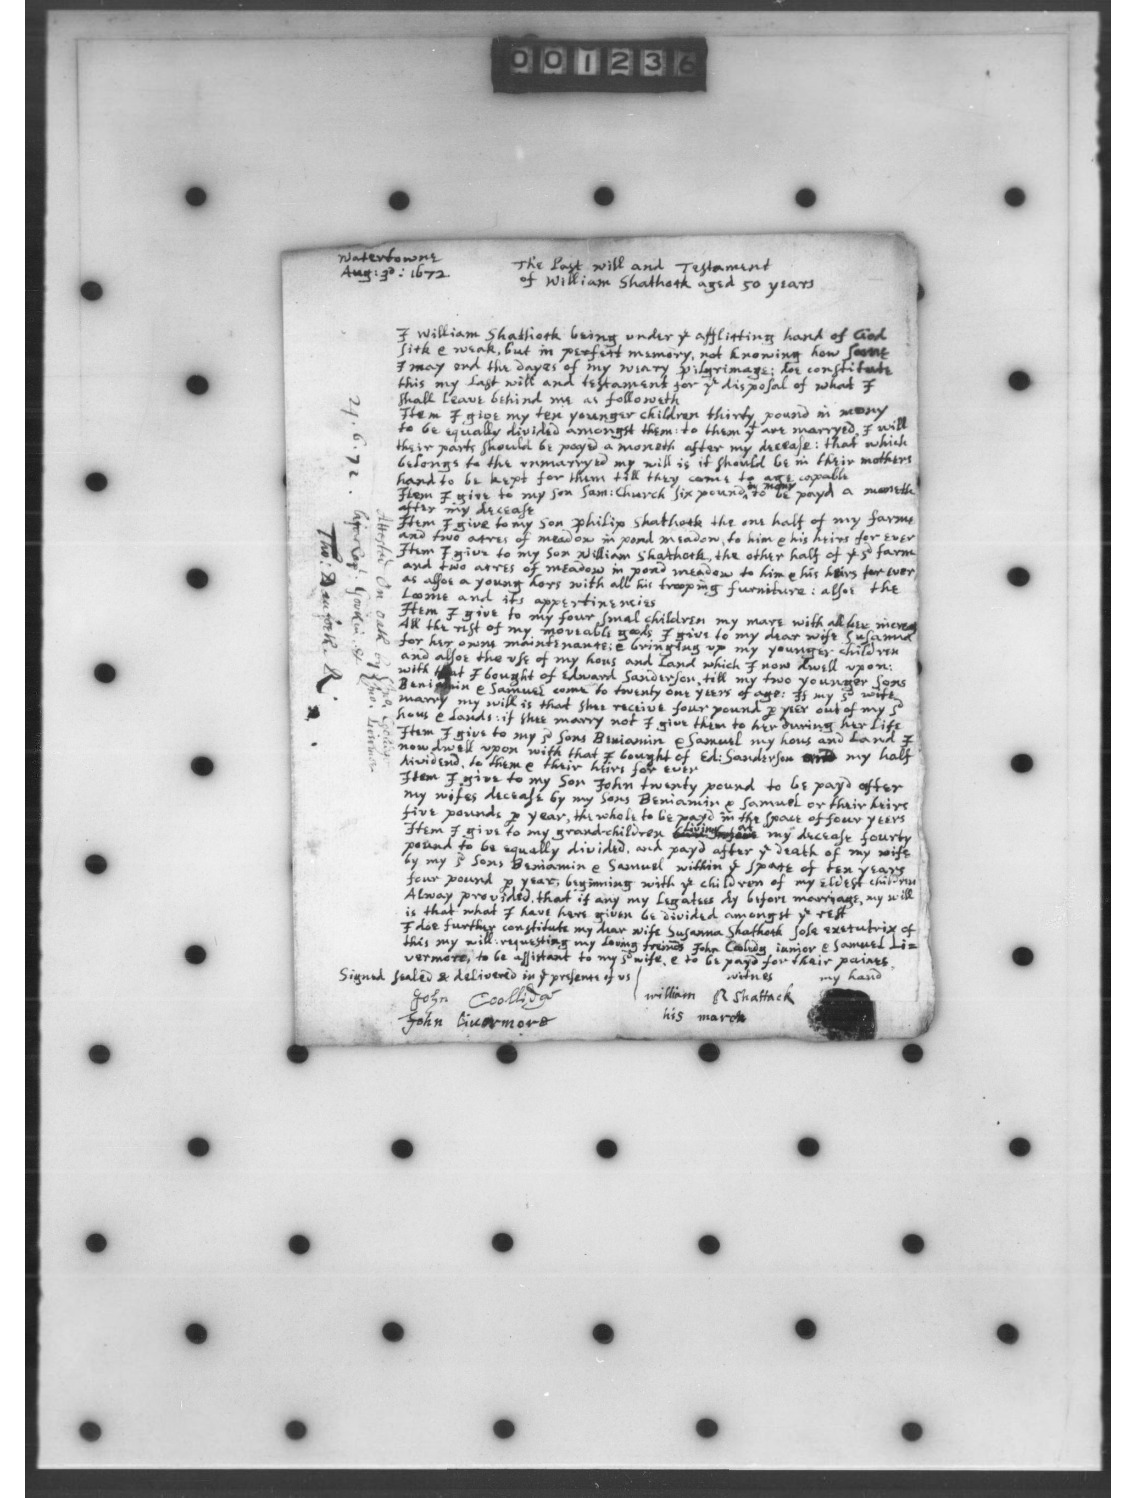 001236
Watertowne
Aug: 3d: 1672
The Last will and Testament
of William Shathock aged 50 years
I William Shathock being under ye afflicting hand of God
sick & weak, but in perfect memory, not knowing how soone
I may end the dayes of my weary pilgrimage; doe constitute
this my Last will and testament for ye disposal of what I
shall Leave behind me as followeth
Item I give my ten younger children thirty pound in mony
to be equally divided amongst them: to them yt are marryed, I will
their parts should be payed a moneth after my decease: that which
belongs to the unmarryed my will is it should be in their mothers
hand to be kept for them till they come to age capable
Item I give to my son Sam: Church six pound, in mony to be payd a moneth
after my decease
Item I give to my son Philip Shathock the one half of my farme
and two acres of meadow in pond meadow, to him & his heirs for ever
Item I give to my son William Shathock, the other half of ye sd farm
and two acres of meadow in pond meadow to him & his heirs for ever,
as alsoe a young hors with all his trooping furniture: alsoe the
Loome and its appertinencies
Item I give to my four smal children my mare with all her increas
All the rest of my moveable goods I give to my dear wife Susanna
for her owne maintenance; & bringing up my younger children
and alsoe the use of my hous and Land which I now dwell upon:
with that I bought of Edward Sanderson, till my two younger Sons
Beniamin & Samuel come to twenty one yeers of age: If my sd wife
marry my will is that shee receive four pound p yeer out of my sd
hous & Lands: if shee marry not I give them to her during her Life
Item I give to my sd Sons Beniamin & Samuel my hous and Land I
now dwell upon with that I bought of Ed: Sanderson and my half
dividend, to them & their heirs for ever
Item I give to my Son John twenty pound to be payd after
my wifes decease by my Sons Beniamin & Samuel or their heirs
five pounds p year, the whole to be payd in the space of four yeers
Item I give to my grand-children Living at my decease fourty
pound to be equally divided, and payd after ye death of my wife
by my sd Sons Beniamin & Samuel within ye space of ten years
four pound p year, beginning with ye children of my eldest children
Alway provided, that if any my Legatees dy before marriage, my will
is that what I have here given be divided amongst ye rest
I doe further constitute my dear wife Susanna Shathock sole executrix of
this my will: requesting my Loving freinds John Coolidg iunior & Samuel Li=
vermore, to be assistant to my sd wife, & to be payd for their paines.
Signed sealed & delivered in ye presence of us
witnes my hand
John Coollidge
John Livermore
william R Shattack
his marck
24. 6. 72.
Attested On oath by Jno. Coolidg
& Jno. Livermor
before Capt: Gookin &
Tho: Danforth. R.